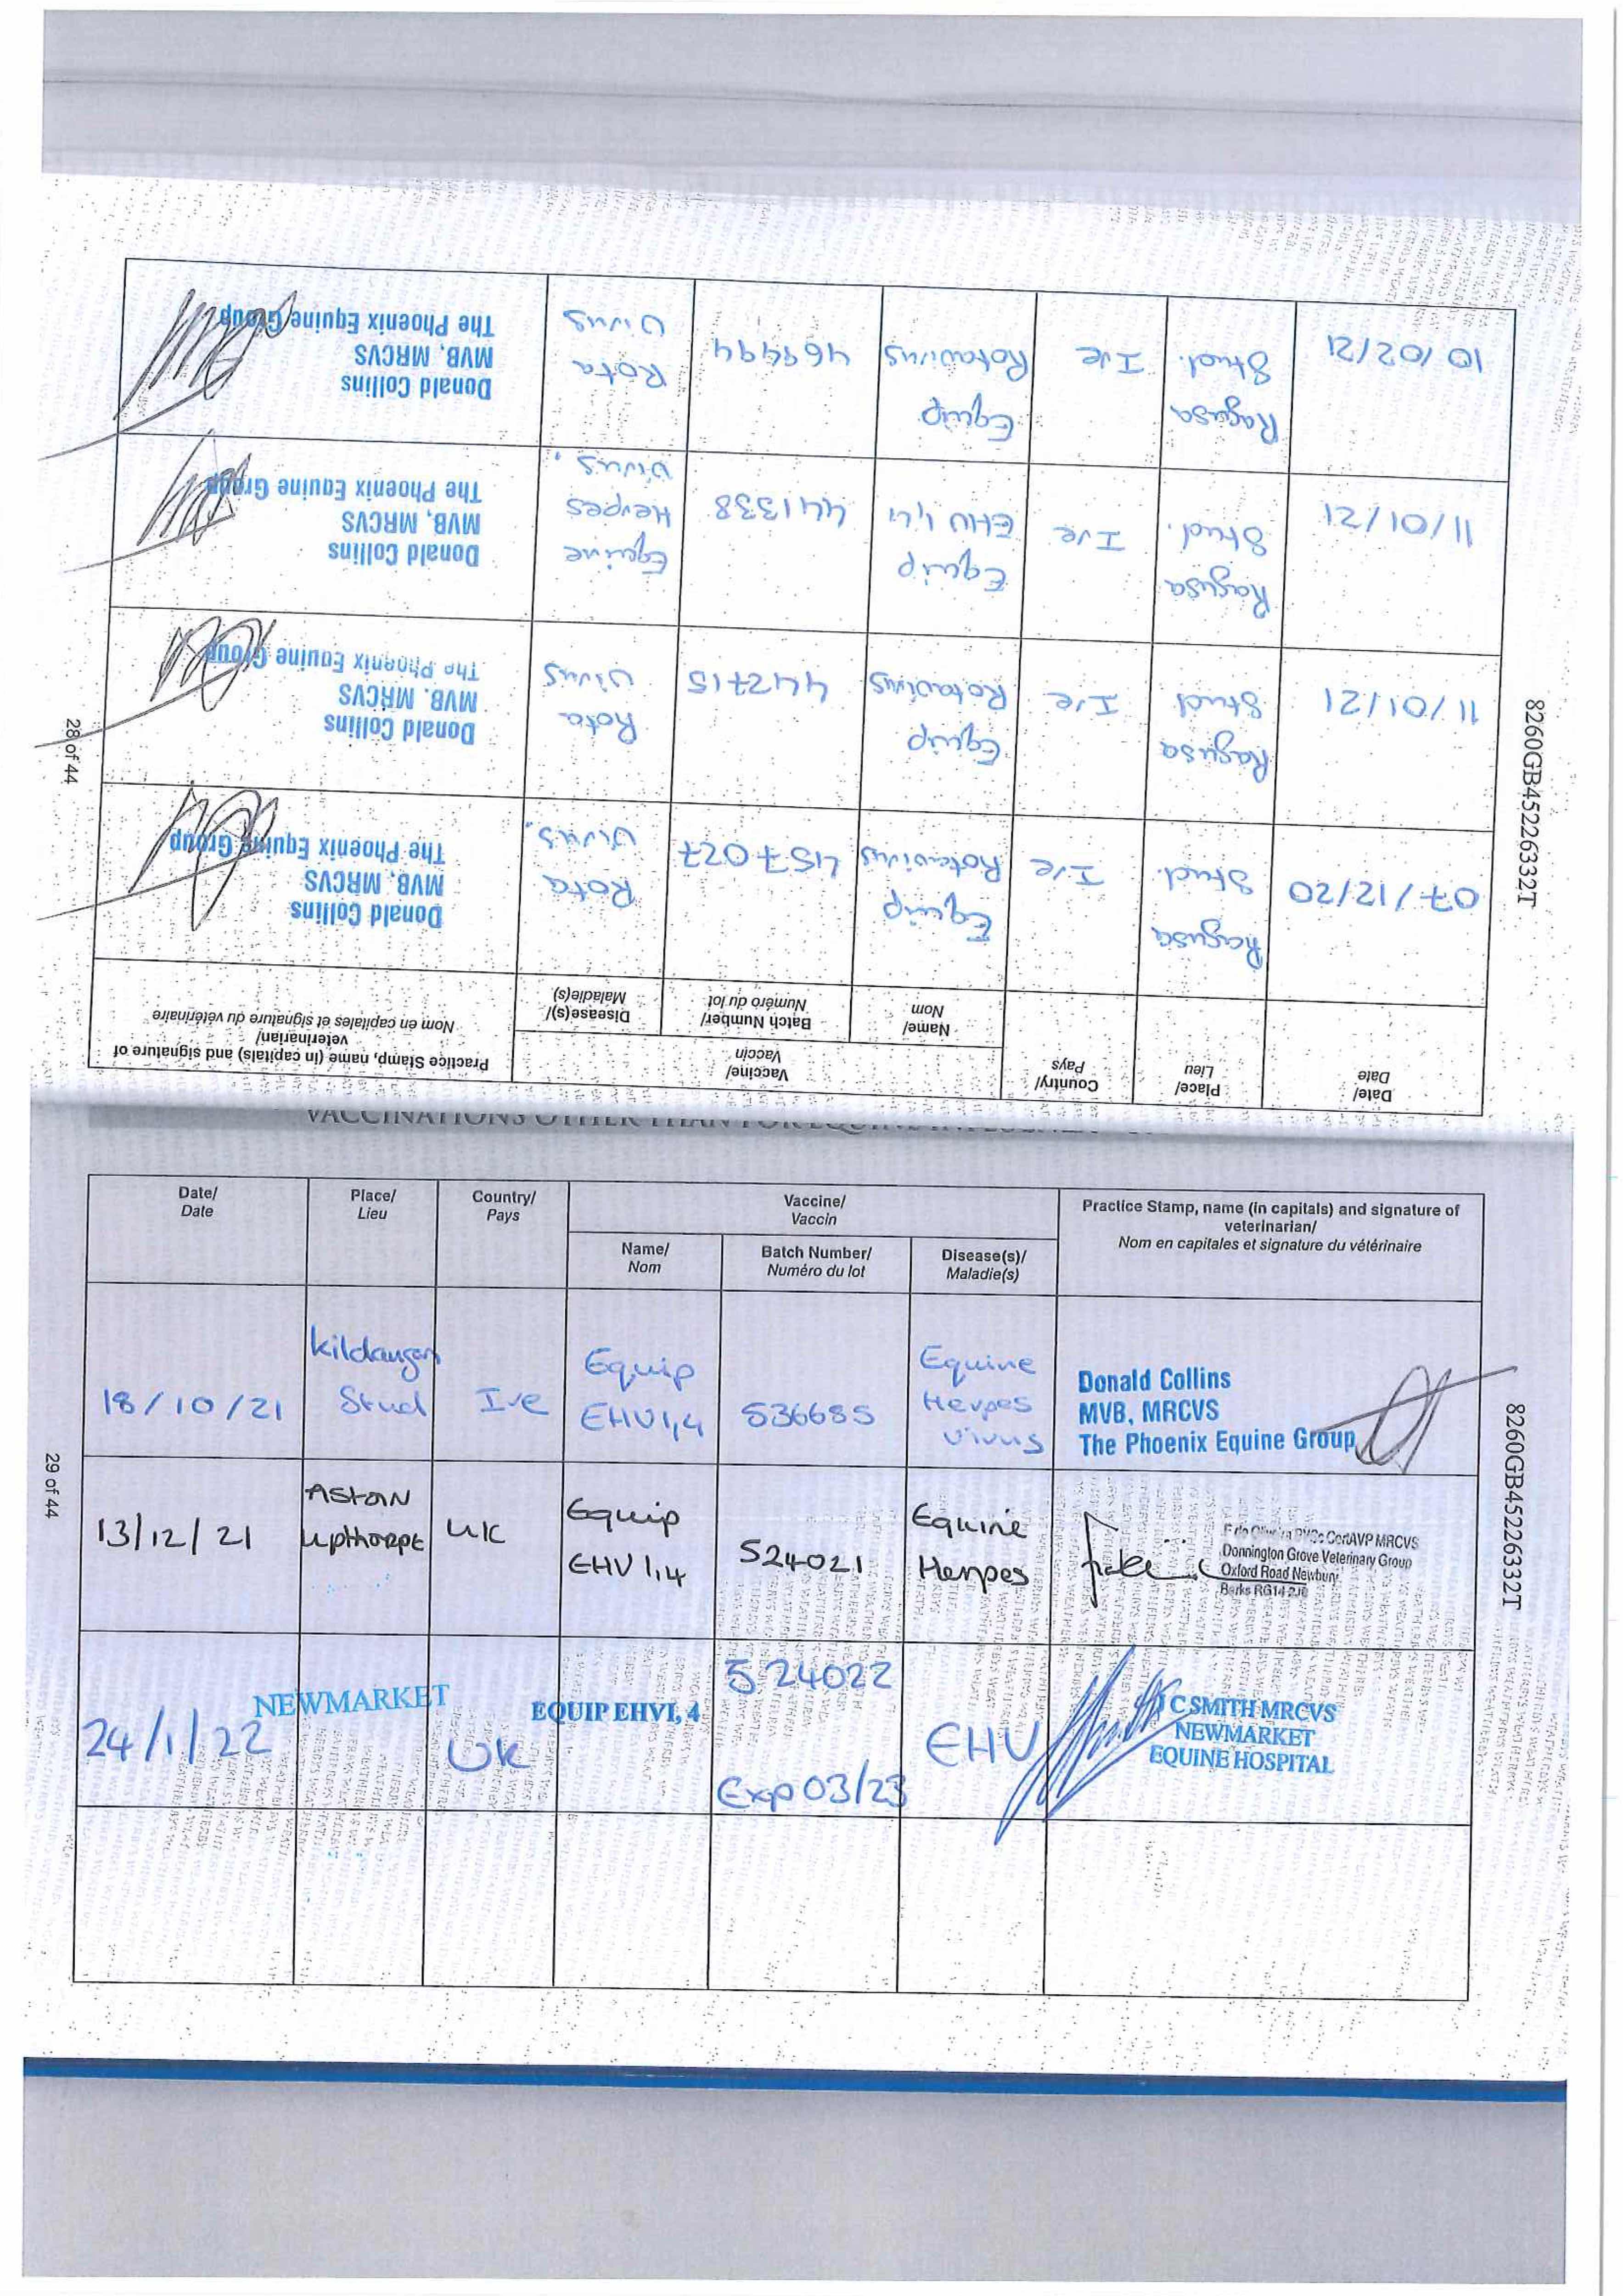 Date/
Date
Place/
Lieu
Country/
Pays
Vaccine/
Vaccin
Name/
Nom
Batch Number/
Numéro du lot
Disease(s)/
Maladie(s)
Practice Stamp, name (in capitals) and signature of
veterinarian/
Nom en capitales et signature du vétérinaire
07/12/20
Ragusa
Stud.
Ire
Equip
Rotavirus
457027
Rota
Virus.
Donald Collins
MVB, MRCVS
The Phoenix Equine Group
11/01/21
Ragusa
Stud
Ire
Equip
Rotavirus
442715
Rota
Virus
Donald Collins
MVB, MRCVS
The Phoenix Equine Group
11/01/21
Ragusa
Stud.
Ire
Equip
EHV 1,4
441338
Equine
Herpes
Virus.
Donald Collins
MVB, MRCVS
The Phoenix Equine Group
10/02/21
Ragusa
Stud.
Ire
Equip
Rotavirus
Rota
Virus
Donald Collins
MVB, MRCVS
The Phoenix Equine Group
28 of 44
8260GB45226332T
VACCINATIONS OTHER THAN FOR EQUINE
Date/
Date
Place/
Lieu
Country/
Pays
Vaccine/
Vaccin
Name/
Nom
Batch Number/
Numéro du lot
Disease(s)/
Maladie(s)
Practice Stamp, name (in capitals) and signature of
veterinarian/
Nom en capitales et signature du vétérinaire
18/10/21
Kildangan
Stud
Ire
Equip
EHV1,4
536685
Equine
Herpes
Virus
Donald Collins
MVB, MRCVS
The Phoenix Equine Group
13/12/21
Aston
Upthorpe
UK
Equip
EHV 1,4
524021
Equine
Herpes
CertAVP MRCVS
Donnington Grove Veterinary Group
Oxford Road Newbury
Berks RG14 2JB
24/1/22
NEWMARKET
UK
EQUIP EHVI, 4
524022
Exp 03/23
EHV
J C SMITH MRCVS
NEWMARKET
EQUINE HOSPITAL
29 of 44
8260GB45226332T